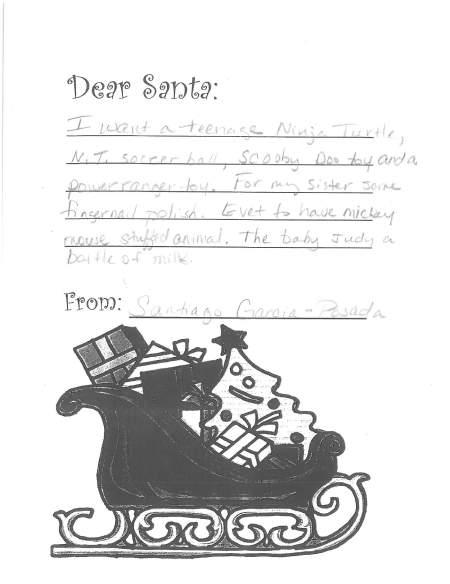 Dear Santa:
I want a teenage Ninja Turtle,
N.T. soccer ball, Scooby Doo toy, and a
power ranger toy. For my sister some
fingernail polish. to have mickey
mouse stuffed animal. The baby Judy a
bottle of milk.
From: Santiago Garcia-Posada